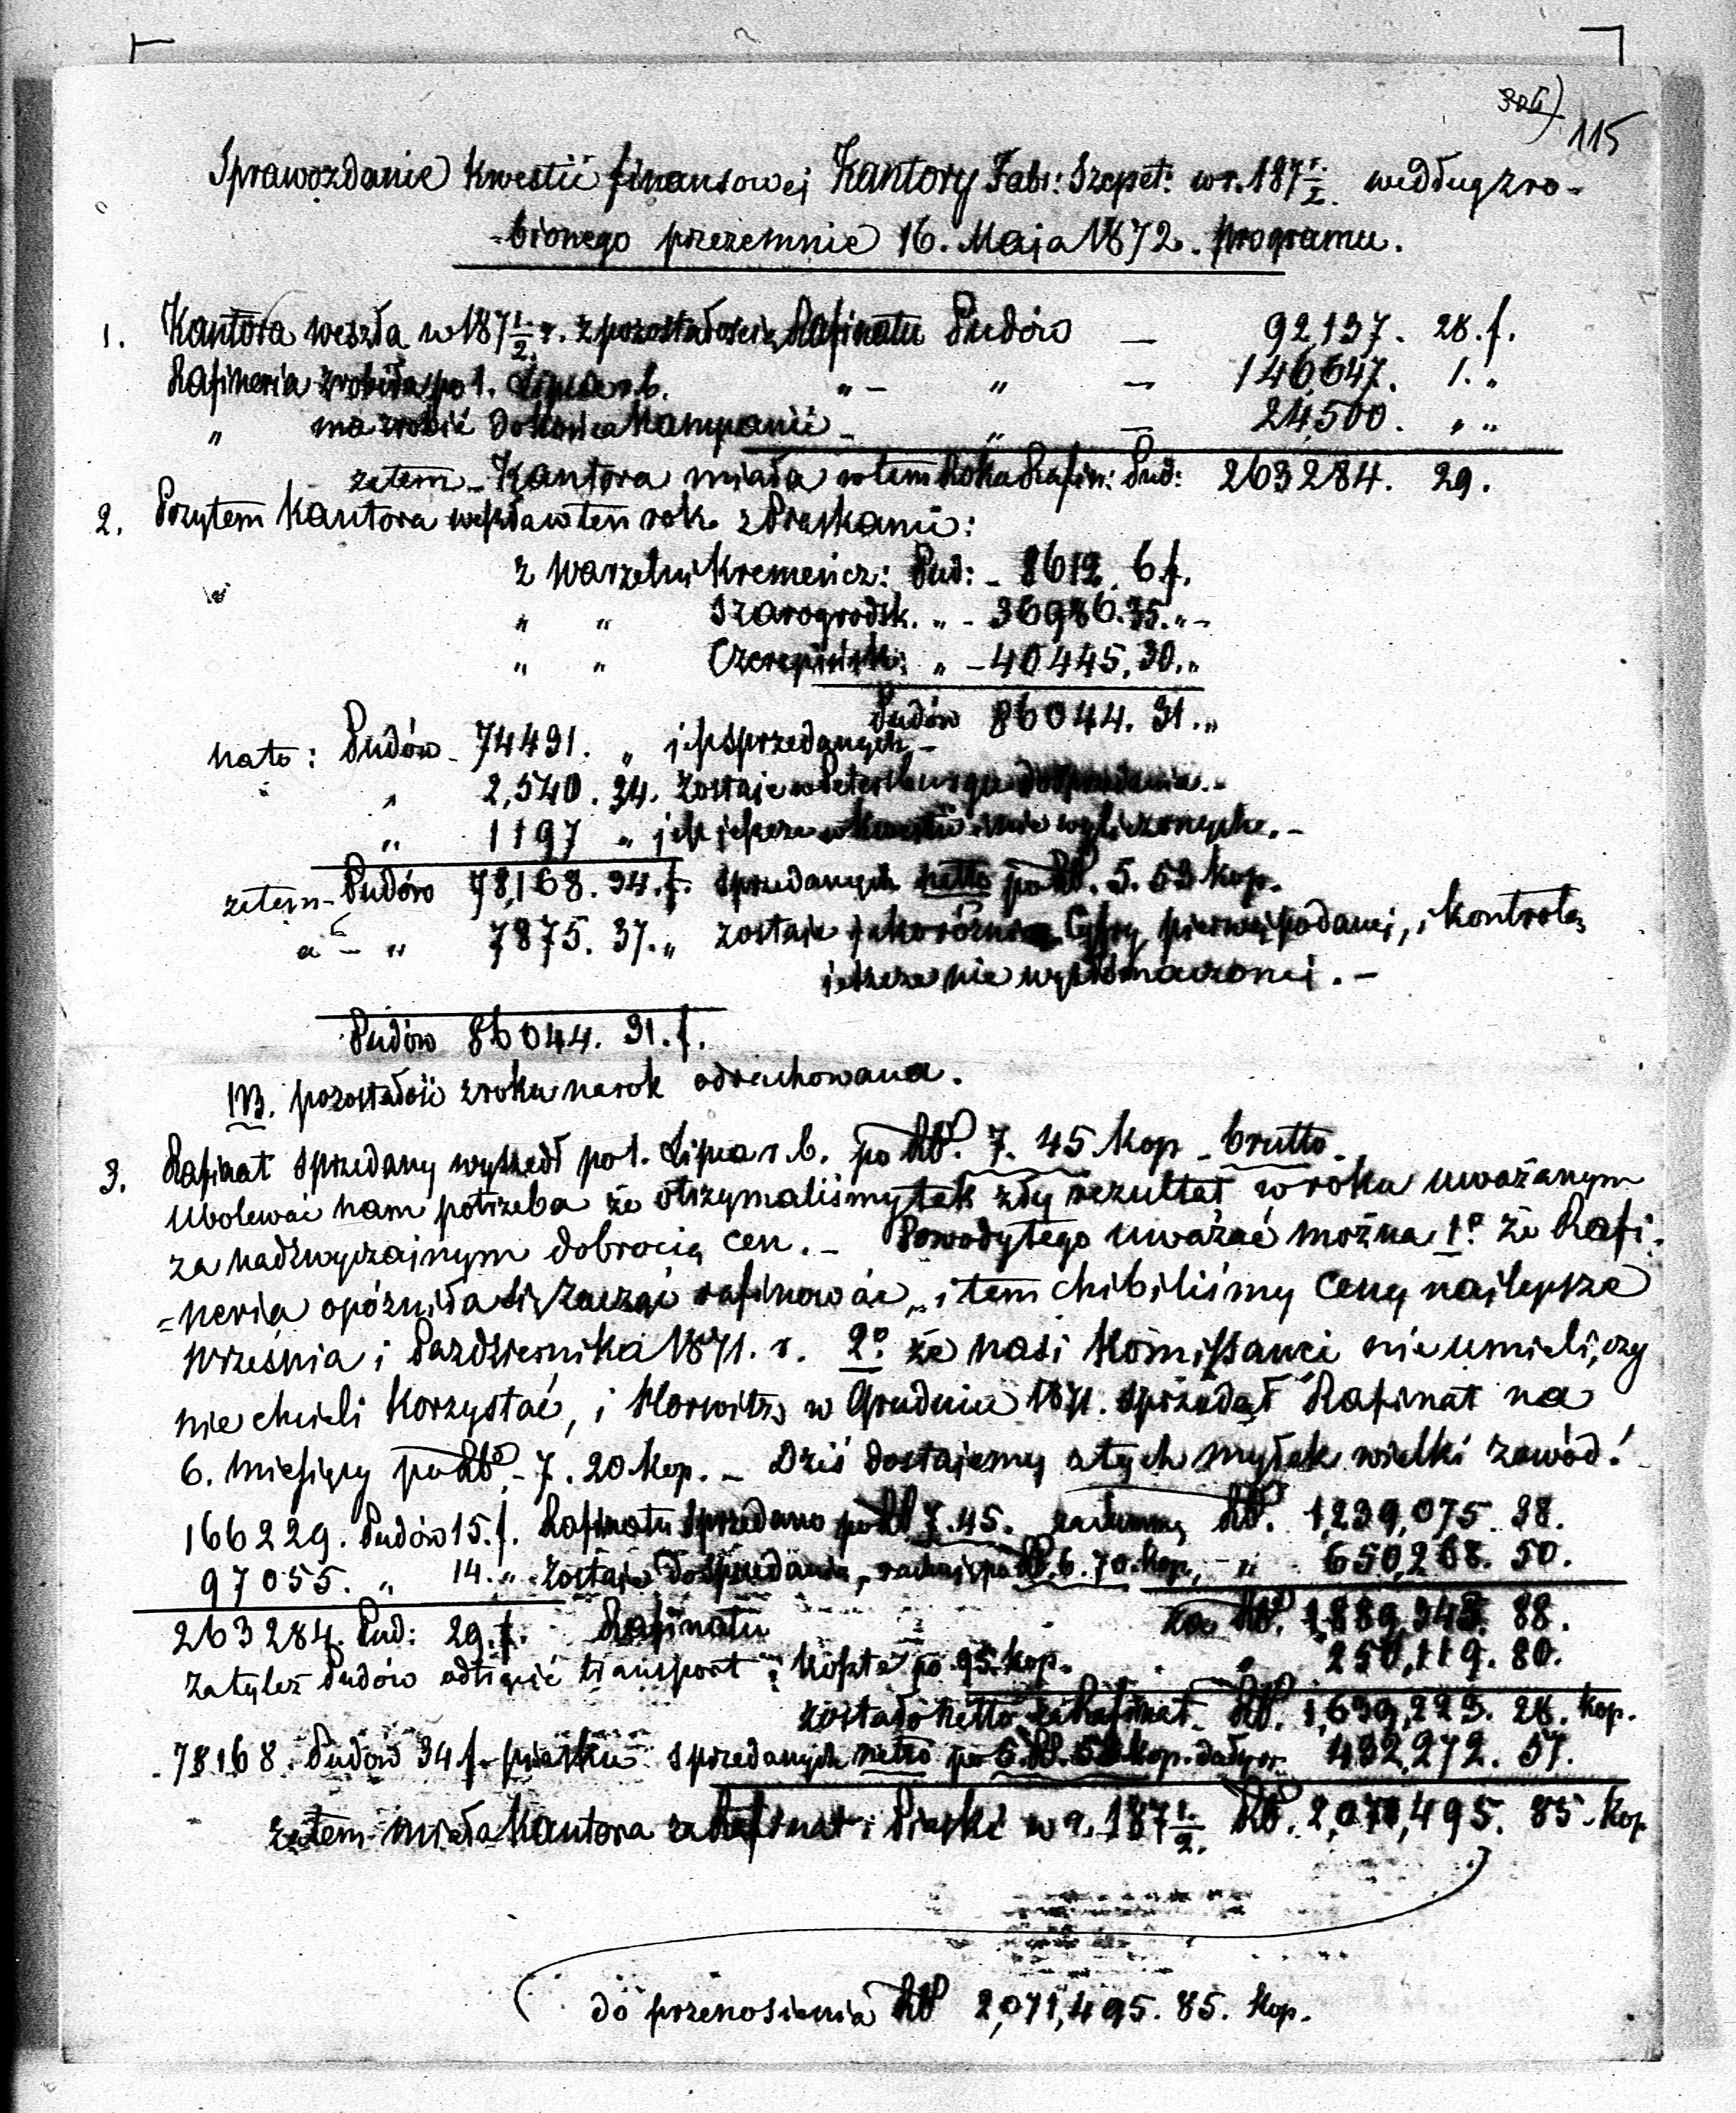 115
Sprawozdanie kwestii finansowej Kantory Fabr: Szepet: w r. 187½ według zro-
-bionego przezemnie 16. Maja 1872. programu.
1. Kantora weszła w 187½ r. z pozostałością Rafinatu Pudów — 92,137. 28. f.
Rafineria zrobiła po 1. Lipca r. b. „ — „ — 146,647. 1. „
„ ma zrobić do końca Kampanii — „ — 24,500. „ „
zatem — Kantora miała w tem Roku Rafin: Pud: 263284. 29.
2. Przytem Kantora weszła w ten rok z Piaskami:
z Warzelni Kremeńcz: Pud: - 8612. 6 f.
„ „ Szarogrodsk. „ - 36986. 35. „ -
„ „ Czerepińsk: „ - 40445. 30. „
Pudów 86044. 31. „
na to: Pudów - 74431. „ jest sprzedanych -
„ 2,540. 34. zostaje w Petersburgu do sprzedania. -
„ 1197 „ jest jeszcze w kwestii i nie wyliczonych. -
zatem - Pudów 78,168. 34. f. sprzedanych netto po Rb. 5. 53 kop.
a — „ 7875. 37. „ zostaje jako różnica Cyfry pierwej podanej, i kontrolą
jeszcze nie wytłómaczonej. —
Pudów 86044. 31. f.
NB. pozostałość z roku na rok odrachowana.
3. Rafinat sprzedany wyszedł po 1. Lipca r. b. po Rb. 7. 45 kop - brutto -
Ubolewać nam potrzeba że otrzymaliśmy tak zły rezultat w roku uważanym
za nadzwyczajnym dobrocią cen. — Powody tego uważać można 1º że Rafi-
=neria opóźniła się zacząć rafinować, i tem chibiliśmy Ceny najlepsze
Września i Pazdziernika 1871. r. 2º że nasi Komissanci nie umieli, czy
nie chcieli Korzystać, i Horwitz w Grudniu 1871. sprzedał Rafinat na
6. miesięcy po Rb - 7. 20 kop. — Dziś dostajemy z tych myłek wielki zawód!
166229. Pudów 15. f. Rafinatu sprzedano po Rb 7.45. za summę Rb. 1,239,075. 38.
97055. „ 14. „ zostaje do sprzedania, rachuję po Rb. 6. 70. kop, - „ 650,268. 50.
263284. Pud: 29. f. Rafinatu za Rb. 1,889,343. 88.
Za tyleż Pudów odtrącić transport i koszta po 95 kop. „ 250,119. 80.
zostało netto za Rafinat - Rb. 1,639,223. 28. kop.
78168. Pudów 34 f. piasku sprzedanych netto po 5. Rb. 53 kop. 432,272. 57.
zatem miała Kantora za Rafinat i Piaski w r. 187½ Rb. 2,071,495. 85 - kop
do przenosienia Rb 2,071,495. 85. kop.